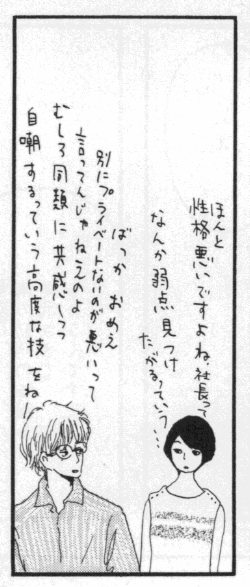 ほんと
性格悪いですよね、社長って
なんか弱点見つけ
たがるっていう…
ばっか おめえ
別にプライベートないのが悪いって
言ってんじゃねえのよ
むしろ同類に共感しつつ
自嘲するっていう高度な技をね…